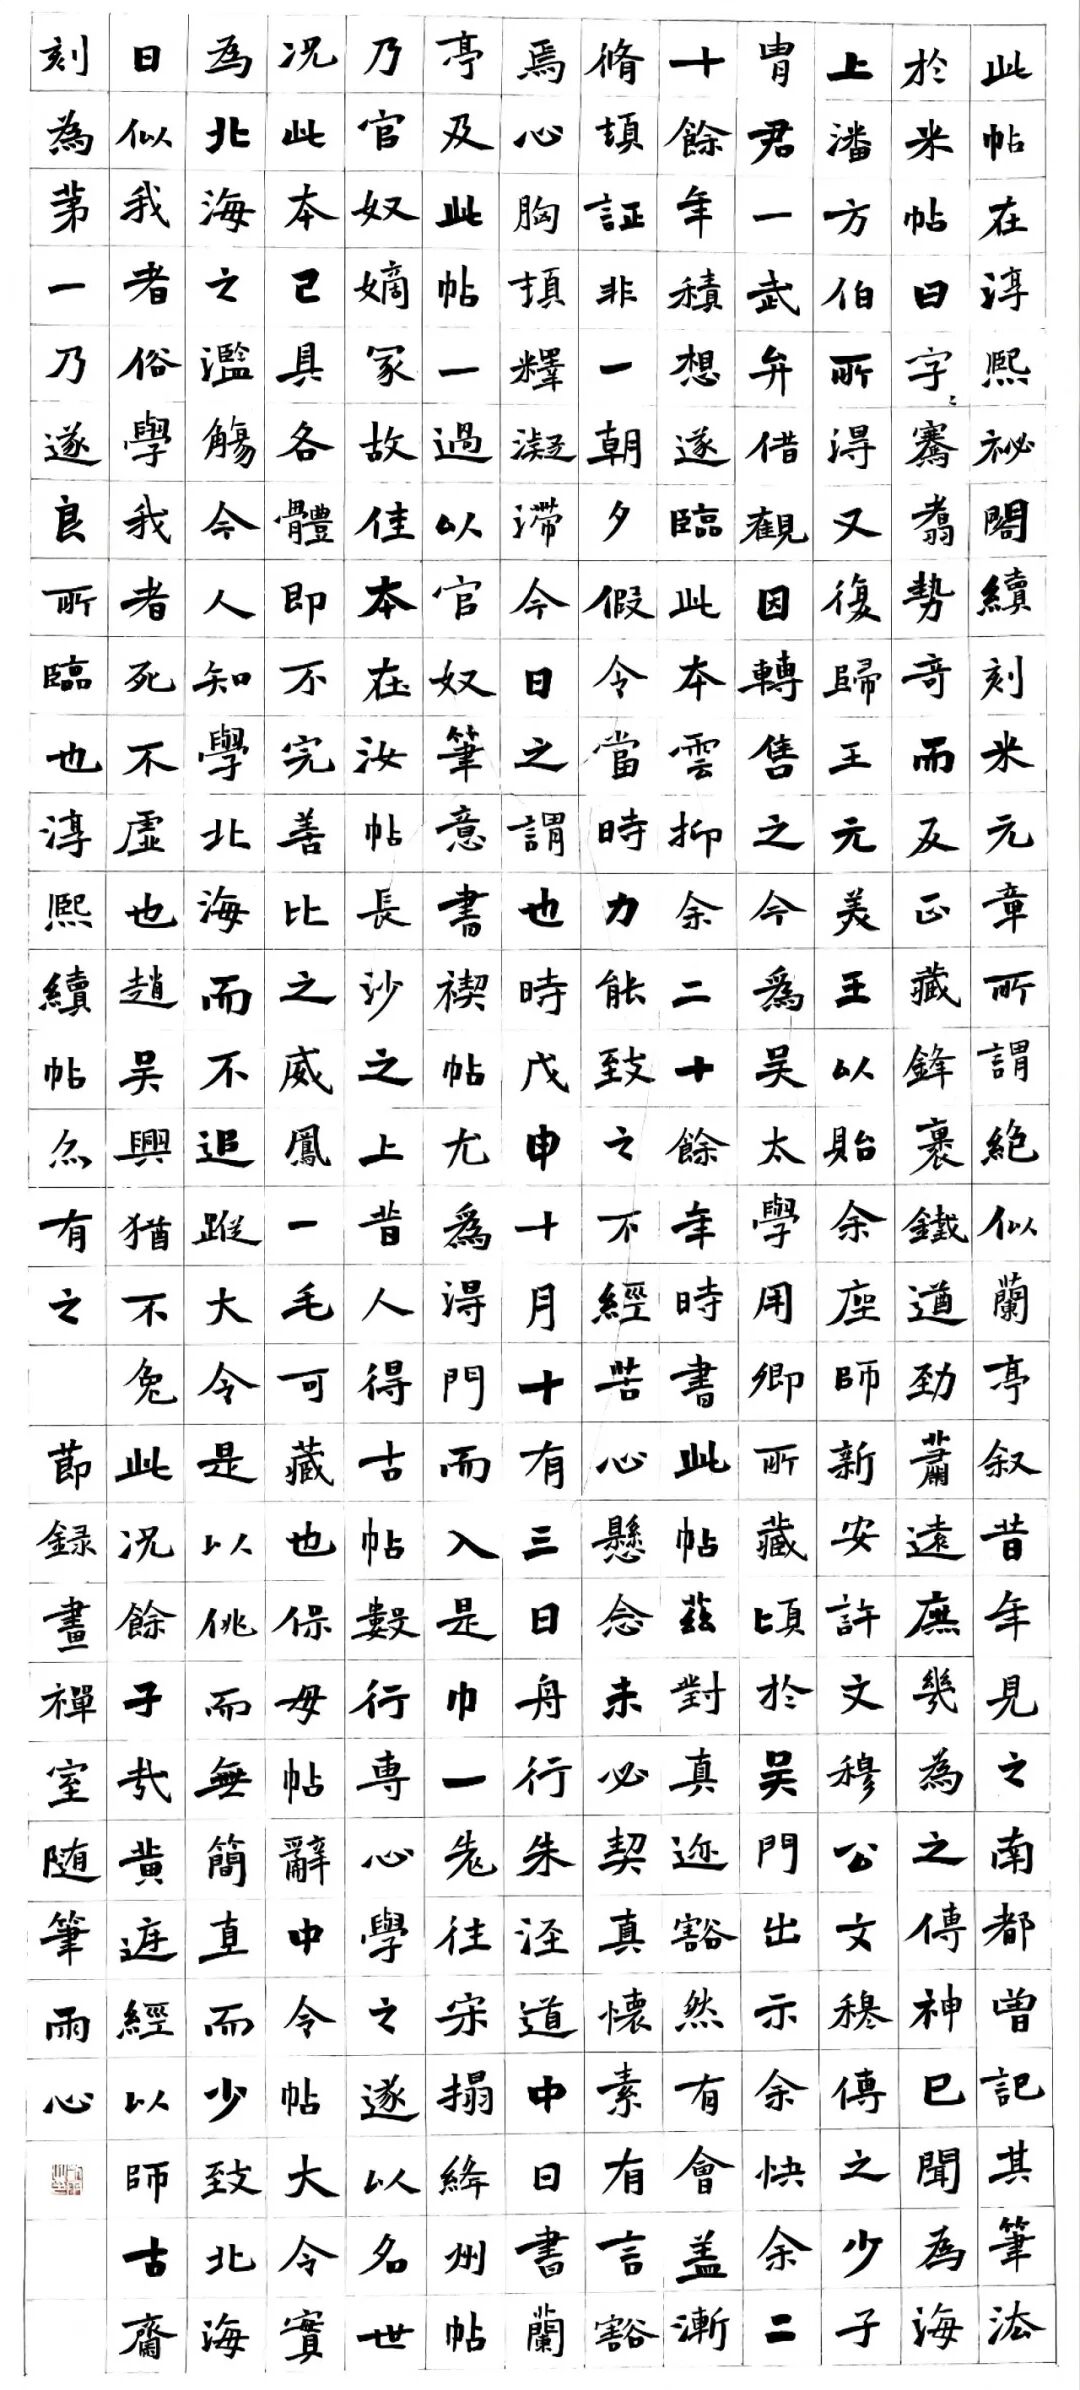 此帖在淳熙祕閣續刻米元章所謂絕似蘭亭叙昔年見之南都曾記其筆法
於米帖曰字〻騫翥勢竒而反正藏鋒裹鐵遒勁蕭遠庶幾為之傳神已聞為海
上潘方伯所得又復歸王元美王以貽余座師新安許文穆公文穆傳之少子
胄君一武弁借觀因轉售之今為吴太學用卿所藏頃於吴門出示余快余二
十餘年積想遂臨此本雲抑余二十餘年時書此帖兹對真迹豁然有會盖漸
脩頓証非一朝夕假令當時力能致之不經苦心懸念未必契真懷素有言豁
焉心胸頓釋凝滯今日之謂也時戊申十月十有三日舟行朱涇道中日書蘭
亭及此帖一過以官奴筆意書禊帖尤為得門而入是巾一先往宋搨絳州帖
乃官奴嫡冢故佳本在汝帖長沙之上昔人得古帖數行専心學之遂以名世
况此本已具各體即不完善比之威鳳一毛可藏也保母帖辭中令帖大令實
為北海之濫觴今人知學北海而不追蹤大令是以佻而無簡直而少致北海
曰似我者俗學我者死不虛也趙吴興猶不免此况餘子哉黄庭經以師古齋
刻為苐一乃遂良所臨也淳熙續帖亦有之 節録畫禪室随筆雨心